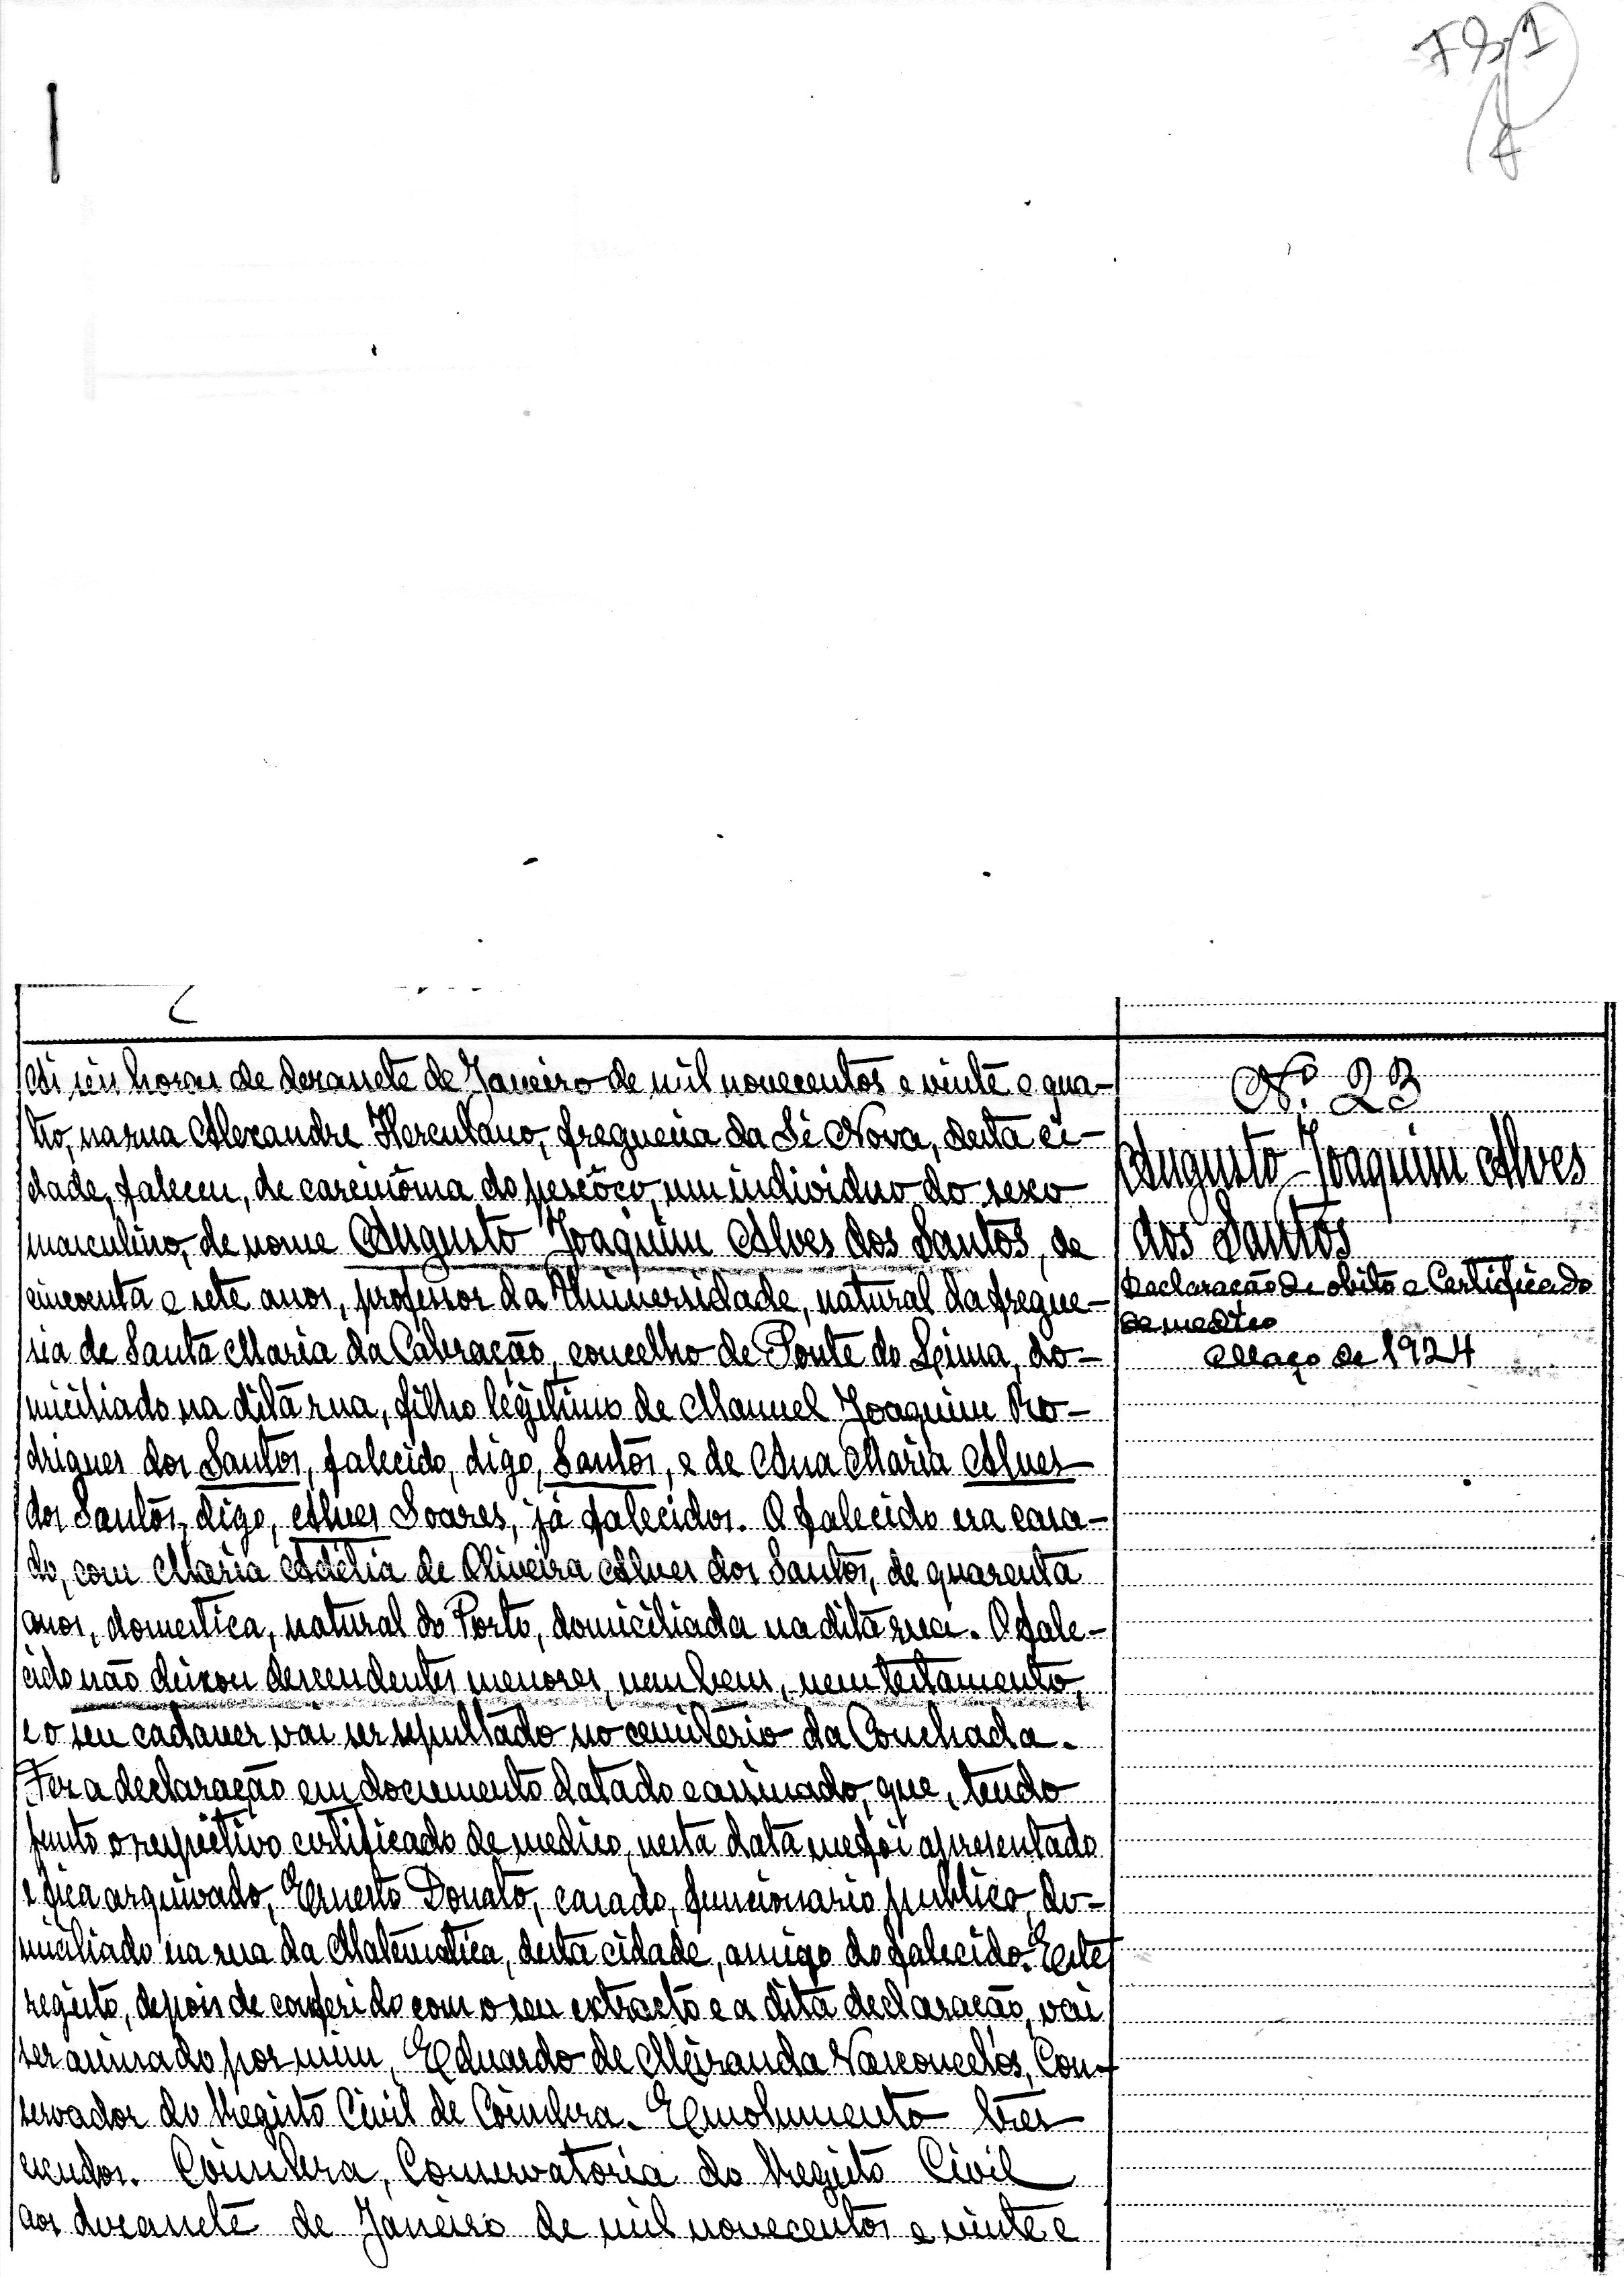 Às seis horas de dezassete de Janeiro de mil novecentos e vinte e qua-
tro, na rua Alexandre Herculano, freguesia da Sé Nova, desta ci-
dade, faleceu, de carcinôma do pescôço, um individuo do sexo
masculino, de nome Augusto Joaquim Alves dos Santos, de
cincoenta e sete anos, professor da Universidade, natural da fregue-
sia de Santa Maria da Cabração, concelho de Ponte do Lima, do-
miciliado na dita rua, filho legitimo de Manuel Joaquim Ro-
drigues dos Santos, falecido, digo, Santos, e de Ana Maria Alves
dos Santos, digo, Alves Soares, já falecidos. O falecido era casa-
do, com Maria Adelia de Oliveira Alves dos Santos, de quarenta
anos, domestica, natural do Porto, domiciliada na dita rua. O fale-
cido não deixou descendentes menores, nem bens, nem testamento,
e o seu cadaver vai ser sepultado no cemitério da Conchada.
Fez a declaração em documento datado e assinado, que, tendo
junto o respectivo certificado de medico, nesta data me foi apresentado
e fica arquivado, Ernesto Donato, casado, funcionario publico, do-
miciliado na rua da Matematica, desta cidade, amigo do falecido. Este
registo, depois de conferido com o seu extracto e a dita declaração, vai
ser assinado por mim, Eduardo de Miranda Vasconcelos, Con-
servador do Registo Civil de Coimbra. Emolumento tres
escudos. Coimbra, Conservatoria do Registo Civil
aos dezassete de Janeiro de mil novecentos e vinte e
Nº. 23
Augusto Joaquim Alves
dos Santos
Declaração de obito e Certificado
de medico
Maço de 1924